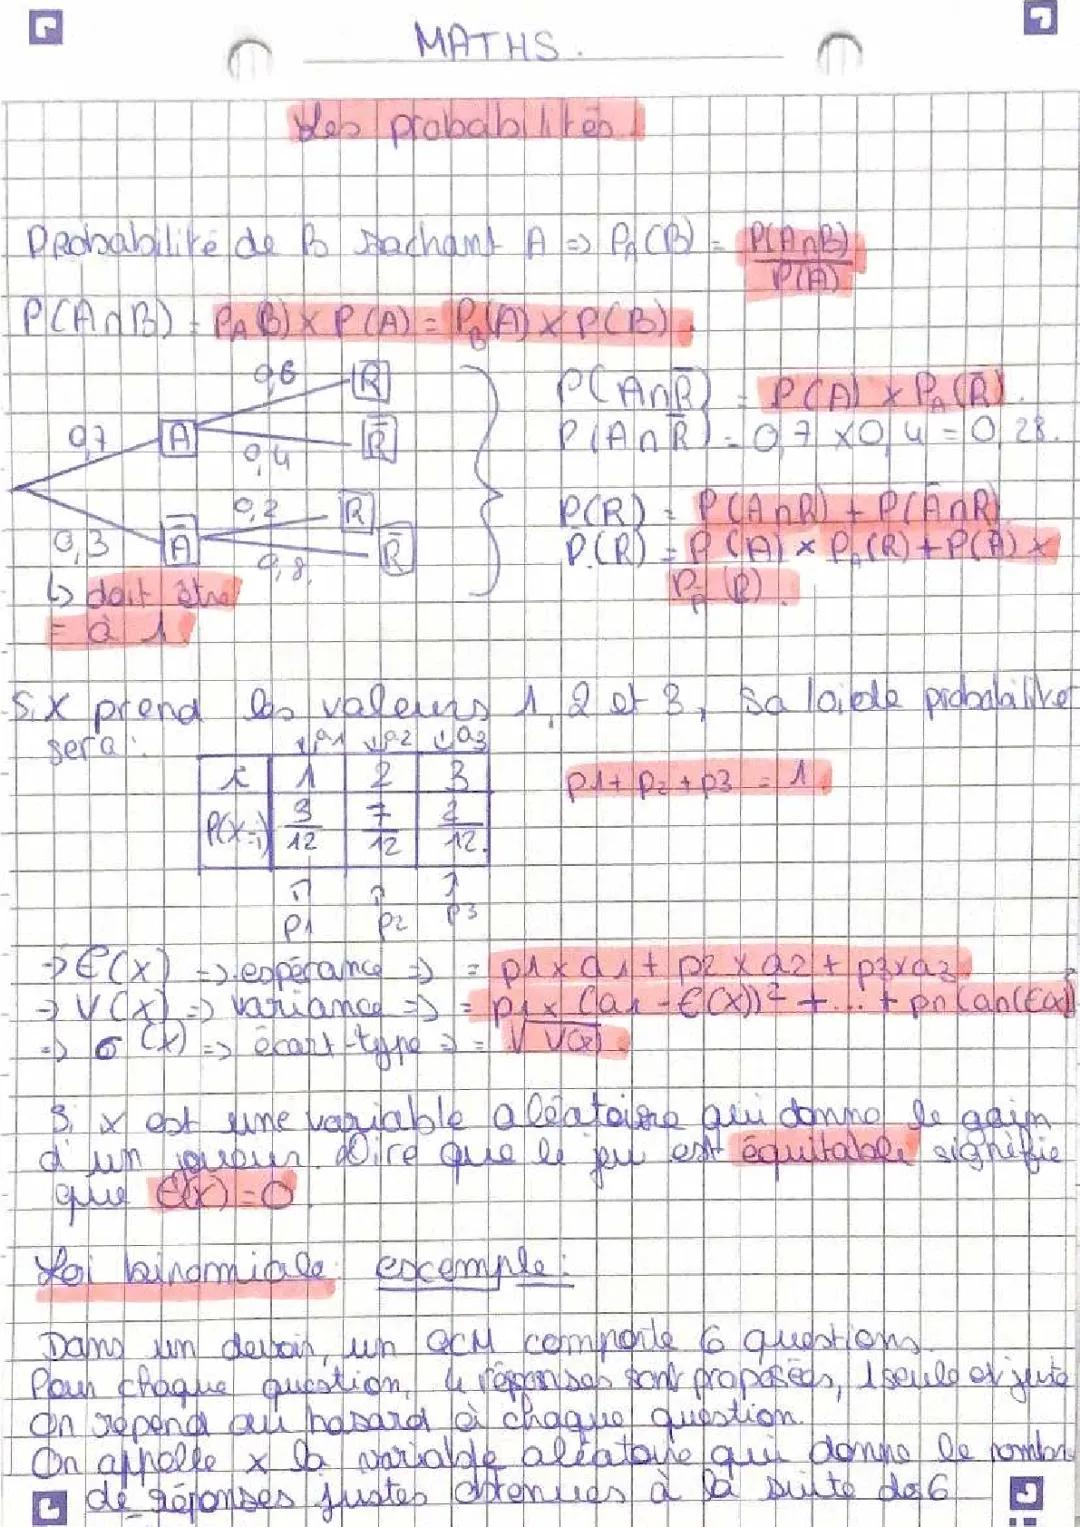 MATHS.
Les probabilités
Probabilité de B sachant A => P_A(B) = P(A∩B)/P(A)
P(A∩B) = P_A(B) × P(A) = P_B(A) × P(B).
0,6 R
0,7 A
0,4 R̄
0,2 R
0,3 Ā
0,8 R̄
↳ doit être
= à 1.
P(A∩R̄) = P(A) × P_A(R̄).
P(A∩R̄) = 0,7 × 0,4 = 0,28.
P(R) = P(A∩R) + P(Ā∩R)
P(R) = P(A) × P_A(R) + P(Ā) ×
P_Ā(R).
Si X prend les valeurs 1, 2 et 3, sa loi de probabilité
sera :
↓a1 ↓a2 ↓a3
x 1 2 3
P(X=i) 3/12 7/12 2/12.
↑ ↑ ↑
p1 p2 p3
p1 + p2 + p3 = 1.
→ E(X) => espérance => = p1 × a1 + p2 × a2 + p3 × a3
→ V(X) => variance => = p1 × (a1 - E(X))² + ... + pn (an(Ea))²
=> σ(X) => écart-type => = √V(x).
Si x est une variable aléatoire qui donne le gain
d'un joueur. Dire que le jeu est équitable signifie
que E(X) = 0.
Loi binomiale : excemple :
Dans un devoir, un QCM comporte 6 questions.
Pour chaque question, 4 réponses sont proposées, 1 seule est juste
On répond au hasard à chaque question.
On appelle x la variable aléatoire qui donne le nombre
de réponses justes obtenues à la suite des 6